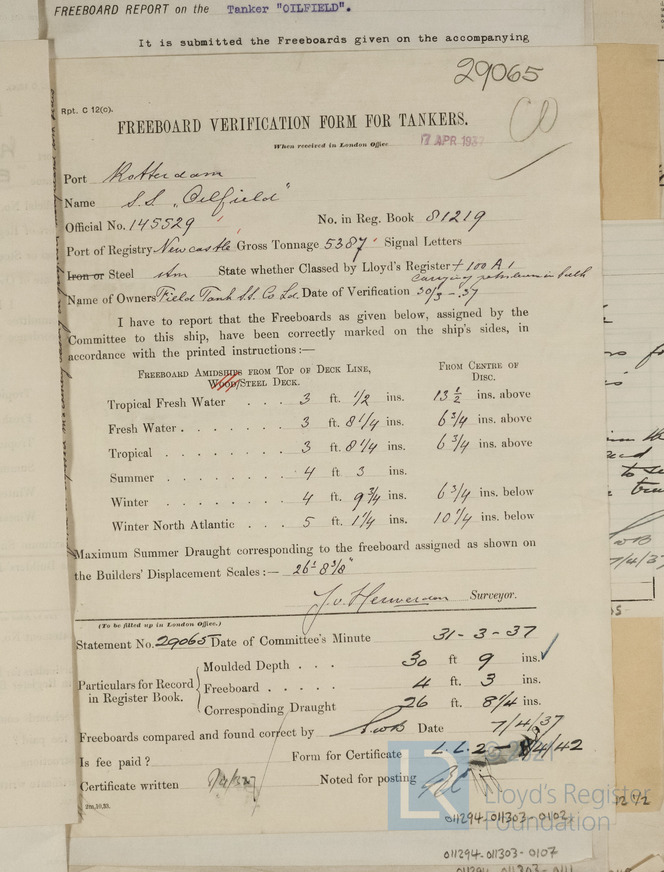 FREEBOARD REPORT on the Tanker "OILFIELD".
It is submitted the Freeboards given on the accompanying
29065
Rpt. C 12(c).
FREEBOARD VERIFICATION FORM FOR TANKERS.
When received in London Office 7 APR 1937
Port Rotterdam
Name S.S. „Oilfield"
Official No. 145529 No. in Reg. Book 81219
Port of Registry Newcastle Gross Tonnage 5387 Signal Letters
Iron or Steel State whether Classed by Lloyd's Register + 100 A 1
carrying petroleum in bulk
Name of Owners Field Tank S.S. Co Ld. Date of Verification 30/3-37
I have to report that the Freeboards as given below, assigned by the
Committee to this ship, have been correctly marked on the ship's sides, in
accordance with the printed instructions :—
FREEBOARD AMIDSHIPS FROM TOP OF DECK LINE, FROM CENTRE OF
WOOD/STEEL DECK. DISC.
Tropical Fresh Water . . . 3 ft. 1/2 ins. 13 1/2 ins. above
Fresh Water . . . . . . . 3 ft. 8 1/4 ins. 6 3/4 ins. above
Tropical . . . . . . . . 3 ft. 8 1/4 ins. 6 3/4 ins. above
Summer . . . . . . . . 4 ft 3 ins.
Winter . . . . . . . . 4 ft. 9 3/4 ins. 6 3/4 ins. below
Winter North Atlantic . . . 5 ft. 1 1/4 ins. 10 1/4 ins. below
Maximum Summer Draught corresponding to the freeboard assigned as shown on
the Builders' Displacement Scales :— 26' 8 3/8"
J. v. Herwerden Surveyor.
(To be filled up in London Office.)
Statement No. 29065 Date of Committee's Minute 31-3-37
Particulars for Record in Register Book.
Moulded Depth . . . 30 ft 9 ins.
Freeboard . . . . . 4 ft. 3 ins.
Corresponding Draught 26 ft. 8 1/4 ins.
Freeboards compared and found correct by Date 7/4/37
Is fee paid ? Form for Certificate L.L.2 - 8/4/42
Certificate written Noted for posting
2m,10,33.
© 2021
LR Lloyd's Register
Foundation
12 1/2
011294-011303-0102
011294-011303-0107
7/4/37